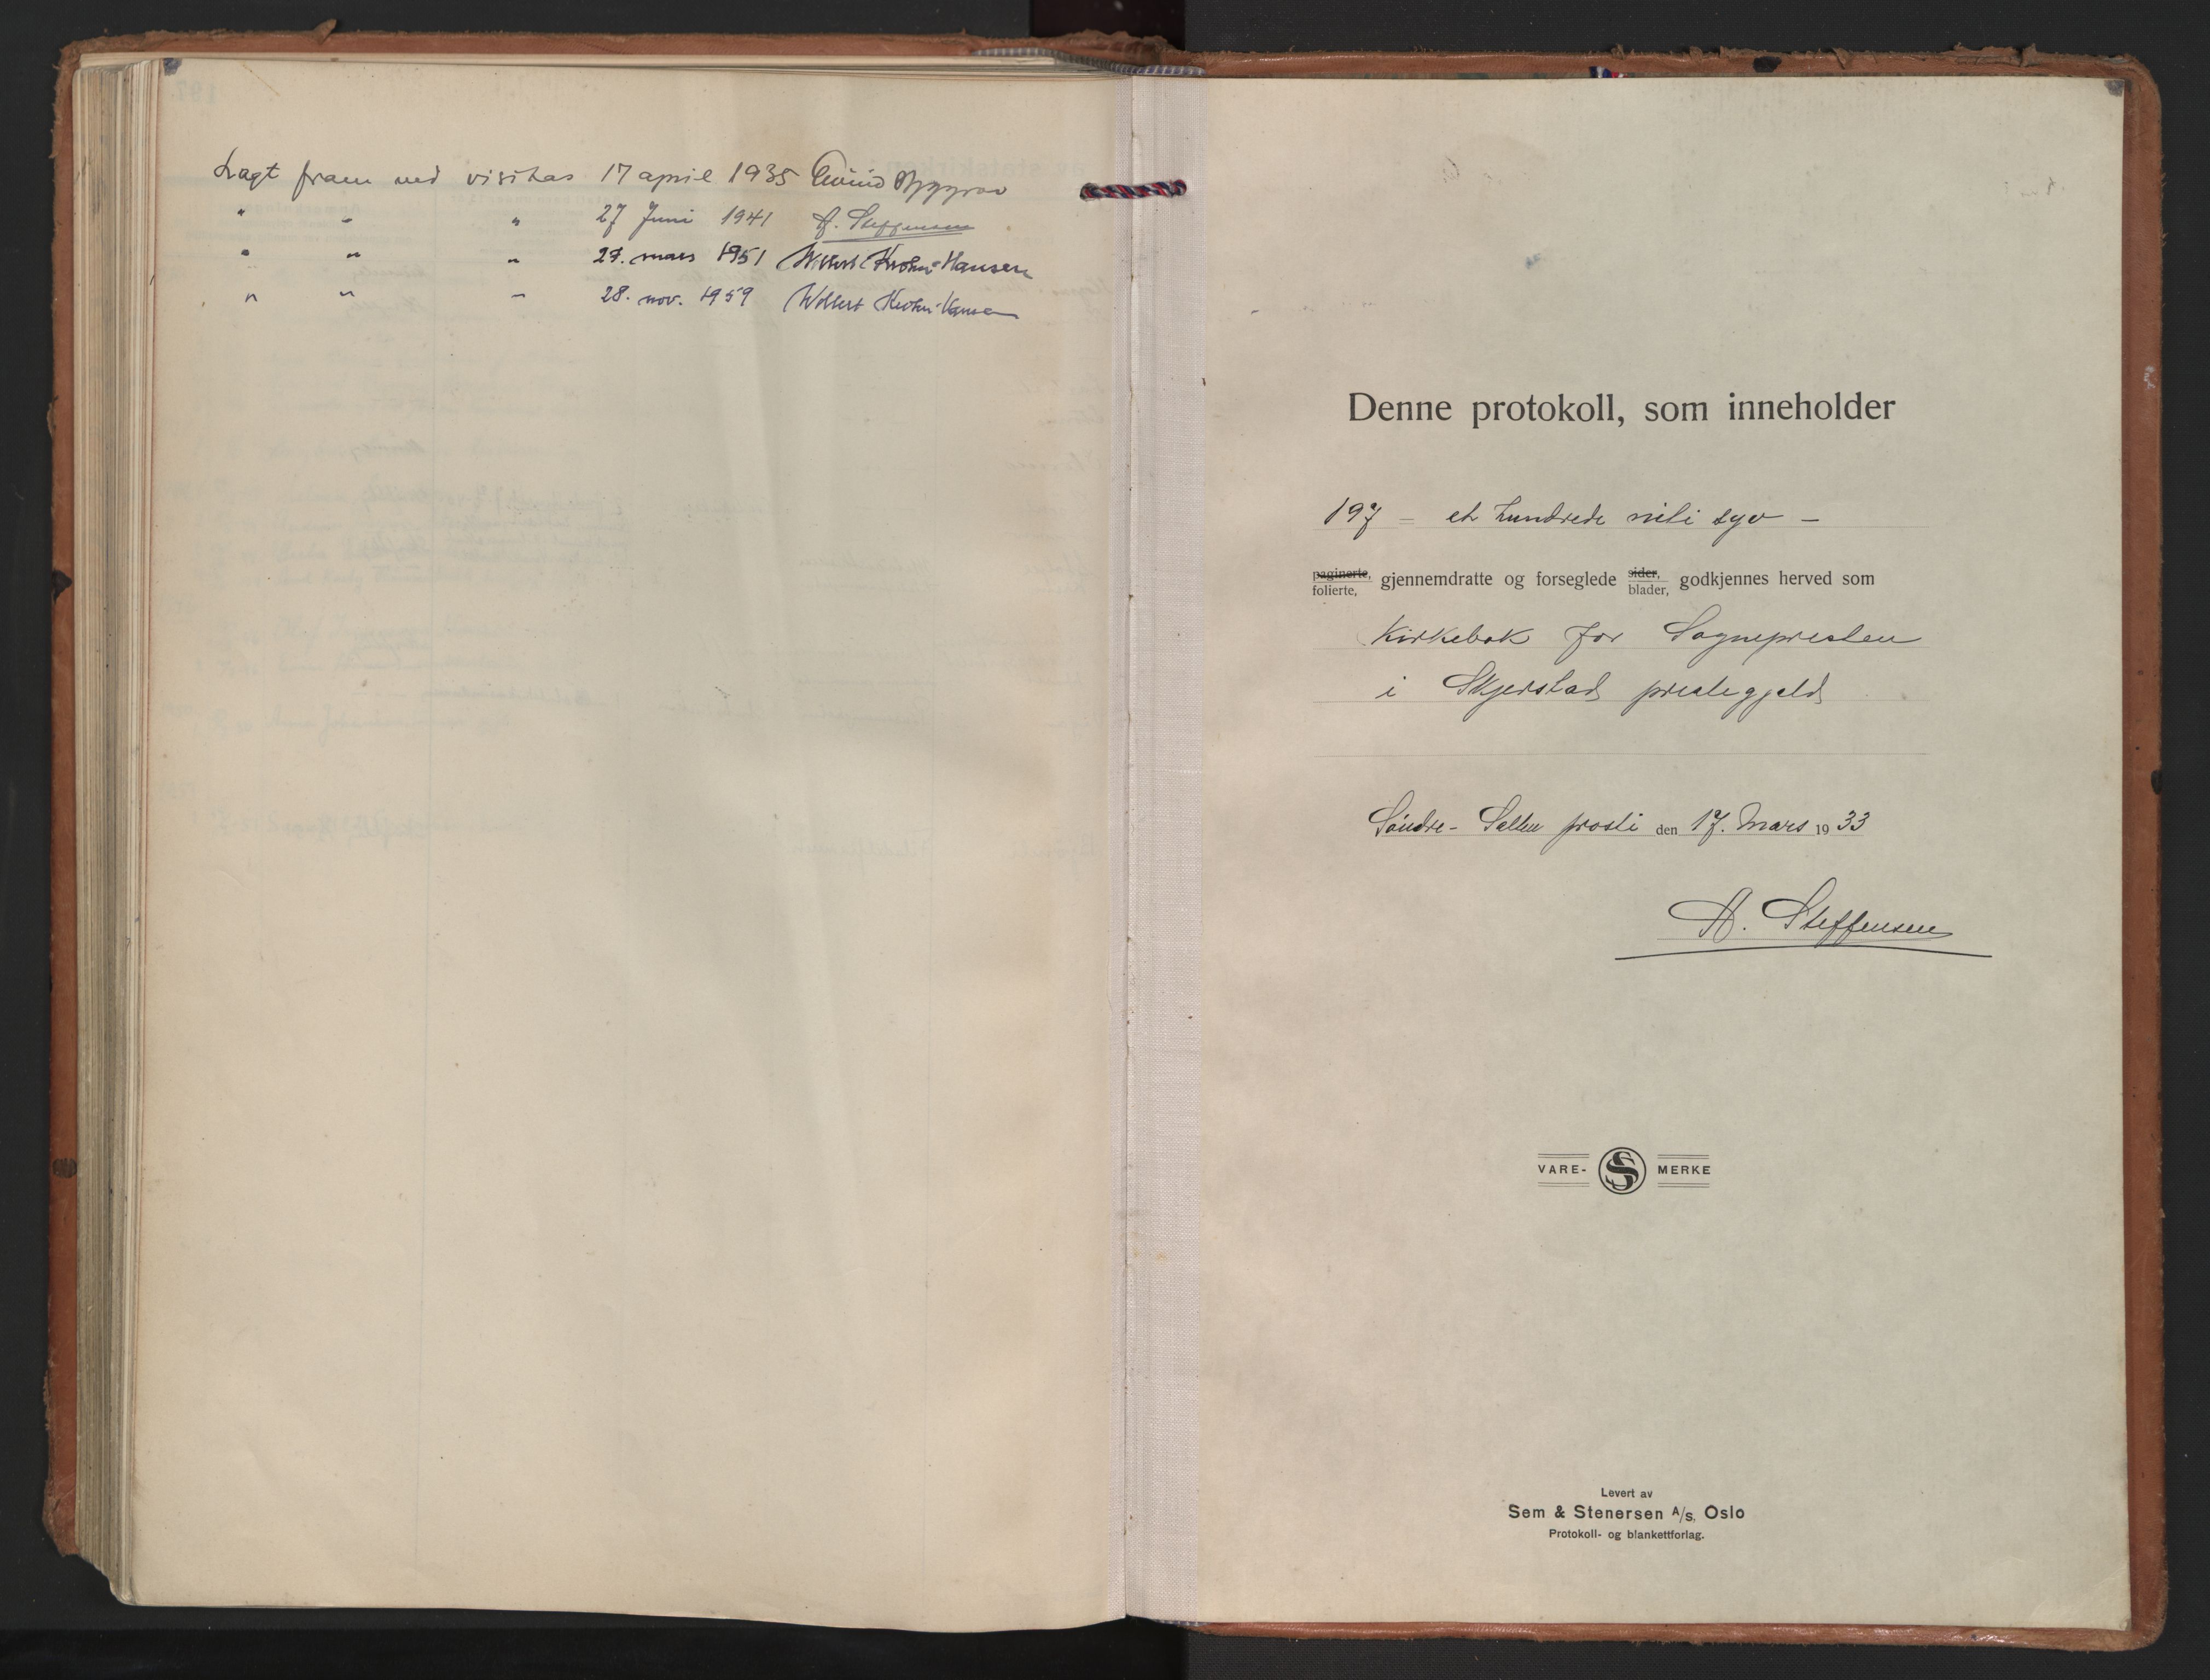 Lagt fram ved visitas 17 april 1935 Eivind Berggrav
" - " 27 Juni 1941 A. Steffensen
" " " 27. mars 1951 Wollert Krohn-Hansen
" " - 28. nov. 1959 Wollert Krohn-Hansen
Denne protokoll, som inneholder
197 - et hundrede nitti syv -
paginerte, folierte, gjennemdratte og forseglede sider, blader, godkjennes herved som
Kirkebok for Sognepresten
i Skjerstad prestegjeld
Søndre-Salten prosti den 17. Mars 1933
A. Steffensen
VARE- S MERKE
Levert av
Sem & Stenersen A/s, Oslo
Protokoll- og blankettforlag.